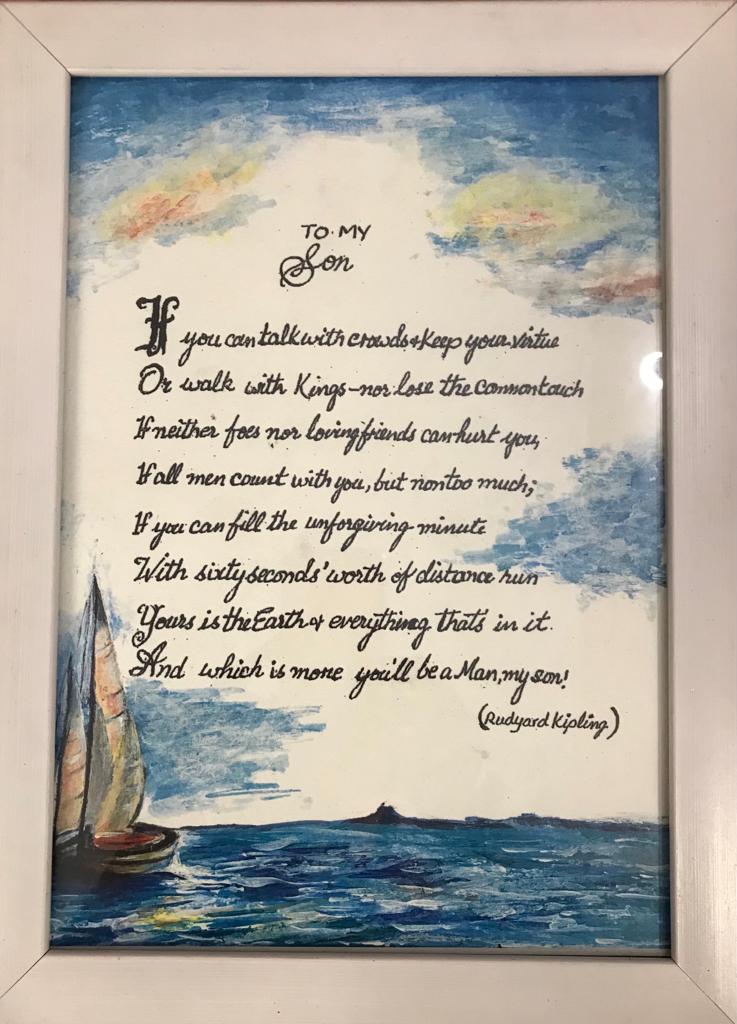 TO MY
Son
If you can talk with crowds & keep your virtue
Or walk with Kings - nor lose the common touch
If neither foes nor loving friends can hurt you,
If all men count with you, but non too much;
If you can fill the unforgiving minute
With sixty seconds' worth of distance run
Yours is the Earth & everything that's in it.
And which is more you'll be a Man, my son!
(Rudyard Kipling)